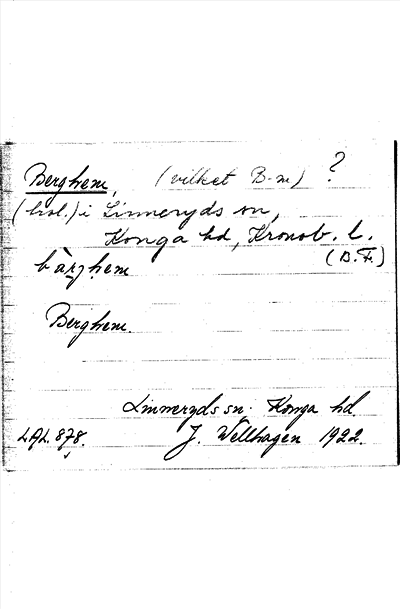 Berghem, (vilket B-m) ?
(hol.) i Linneryds sn,
Konga hd, Kronob. l.
(B.F.)
bàrghem
Berghem.
Linneryds sn. Konga hd.
LAL. 878. J. Wellhagen 1922.